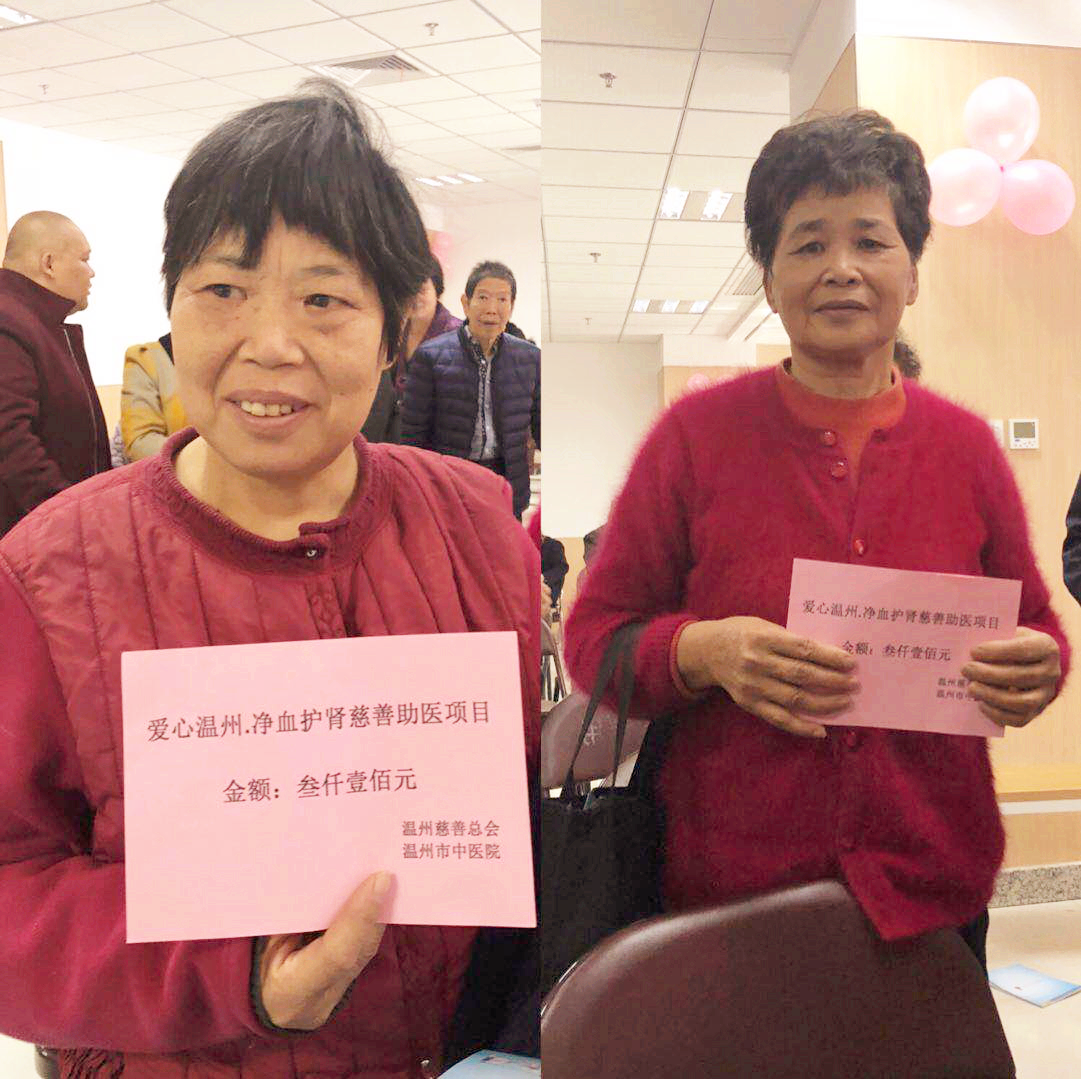 爱心温州.净血护肾慈善助医项目
金额：叁仟壹佰元
温州慈善总会
温州市中医院
爱心温州.净血护肾慈善助医项目
金额：叁仟壹佰元
温州慈
温州市中